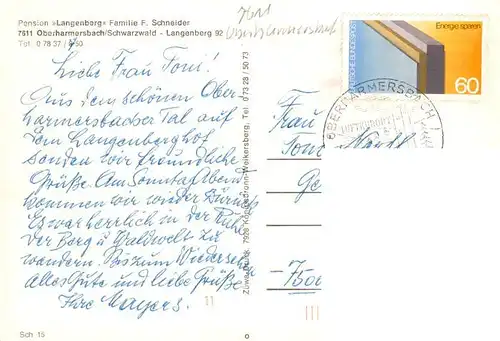 Pension »Langenberg« Familie F. Schneider
7611 Oberharmersbach/Schwarzwald - Langenberg 92
Tel. 0 78 37 /
Liebe Frau Toni!
Aus dem schönen Ober
harmersbacher Tal auf
dem Langenberghof
senden wir freundliche
Grüße. Am Sonntag Abend
kommen wir wieder zurück.
Es war herrlich in der Ruhe
der Berg u Waldwelt zu
wandern. Bis zum Wiedersehen
Alles Gute und liebe Grüße
Ihre Mayers.
Sch 15
7928 Weikersberg, Tel. 0 73 28 / 50 73
DEUTSCHE BUNDESPOST
Energie sparen
60
OBERHARMERSBACH
LUFTKURORT
Frau
Toni
7500